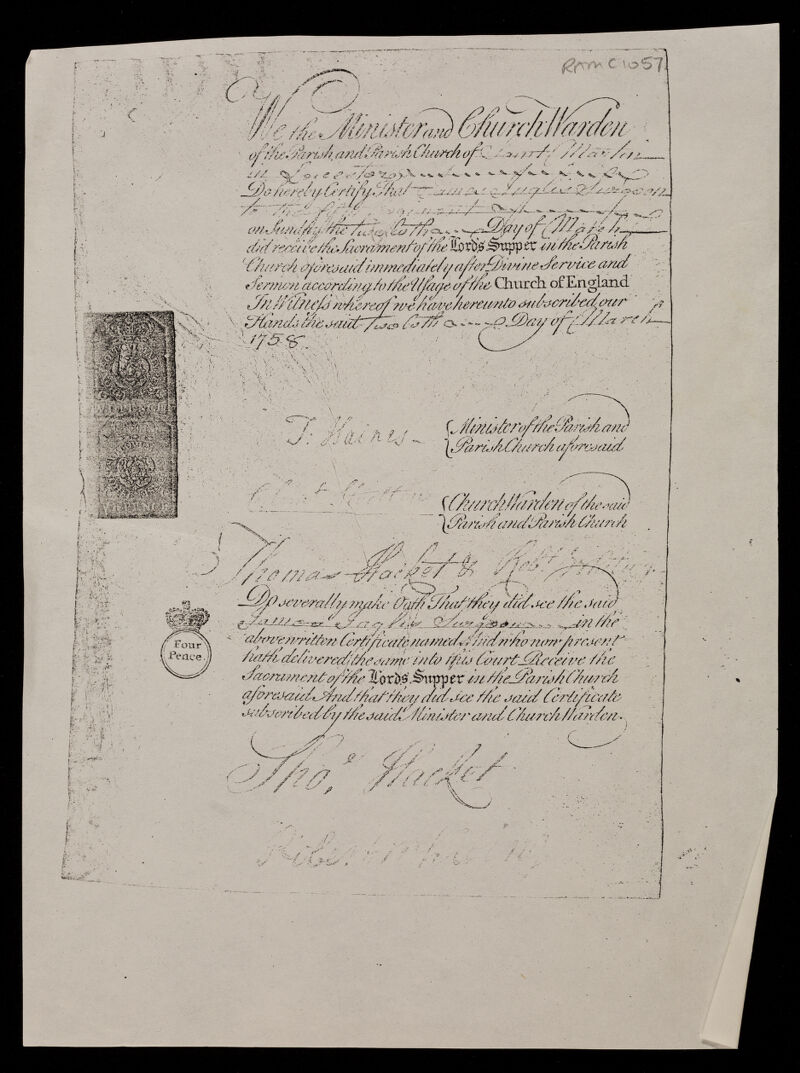 RAMC 1057
We the Minister and Church Warden
of the Parish and Parish Church of Saint Martin
in Leicester
Do hereby Certify That James Inglis Surgeon
to the
on Sunday the twelvth Day of March
did receive the Sacrament of the Lords Supper in the Parish
Church aforesaid immediately after Divine Service and
Sermon according to the Usage of the Church of England
In Witness whereof we have hereunto subscribed our
Hands the said twelvth Day of March
1758.
T: Haines
Minister of the Parish and
Parish Church aforesaid
Church Warden of the said
Parish and Parish Church
Thomas Hacket & Robt
Do severally make Oath That they did see the said
James Inglis Surgeon in the
above written Certificate named And who now present
hath delivered the same into this Court Receive the
Sacrament of the Lords Supper in the Parish Church
aforesaid And that they did see the said Certificate
subscribed by the said Minister and Church Warden.
Four
Pence.
Tho.s Hacket